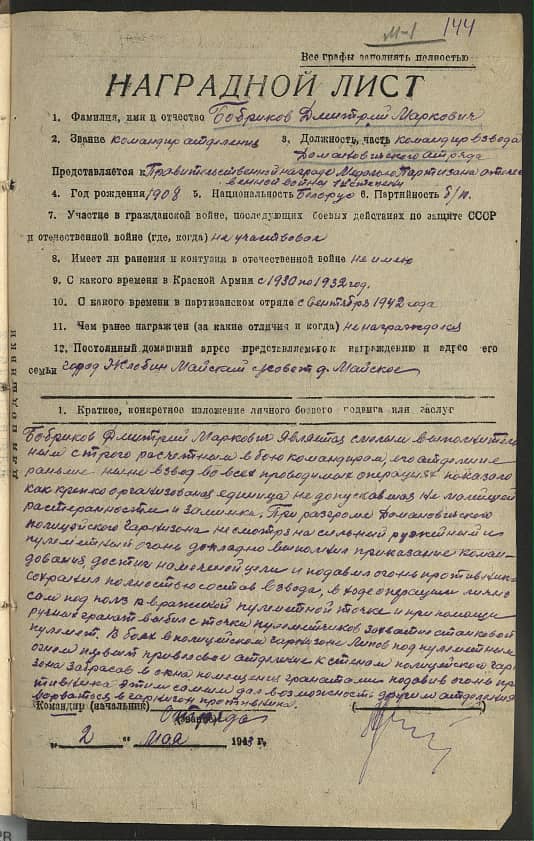 М-1 144
Все графы заполнять полностью
НАГРАДНОЙ ЛИСТ
1. Фамилия, имя и отчество Бобриков Дмитрий Маркович
2. Звание командир отделения 3. Должность, часть командир взвода
Домановичского отряда
Представляется к Правительственной награде Медалью Партизана отечес
венной войны 1 степени
4. Год рождения 1908 5. Национальность Белорус 6. Партийность б/п.
7. Участие в гражданской войне, последующих боевых действиях по защите СССР
и отечественной войне (где, когда) не участвовал
8. Имеет ли ранения и контузии в отечественной войне не имею
9. С какого времени в Красной Армии с 1930 по 1932 год.
10. С какого времени в партизанском отряде с Сентября 1942 года
11. Чем ранее награжден (за какие отличия и когда) не награждался
12. Постоянный домашний адрес представляемого к награждению и адрес его
семьи город Жлобин Майский с/совет д. Майское
для подшивки
1. Краткое, конкретное изложение личного боевого подвига или заслуг
Бобриков Дмитрий Маркович является смелым выполнитель
ным строго расчетным в бою командиром, его отделение
раньше ныне взвод во всех проводимых операциях показало
как крепко организованая единица не допускавшая не малейшей
растеранности и заминки. При разгроме Домановичского
полицейского гарнизона несмотря на сильный ружейный и
пулеметный огонь докладно выполнил приказание коман-
дования, достиг намеченой цели и подавил огонь противника
сохранил полностью состав взвода, в ходе операции лично
сам под полз к вражеской пулеметной точке и при помощи
ручных гранат выбил с точки пулеметчиков захватив станковой
пулемет. В боях в полицейском гарнизоне Липов под пулеметным
огнем привел свое отделение к стенам полицейского гар
зона забрасов в окна помещения гранатами подавив огонь про
тивника этим самим дал возможность другим отделения
ворватся в гарнизон противника.
Командир (начальник) отряда
(звание)
„ 2 " мая 194 г.